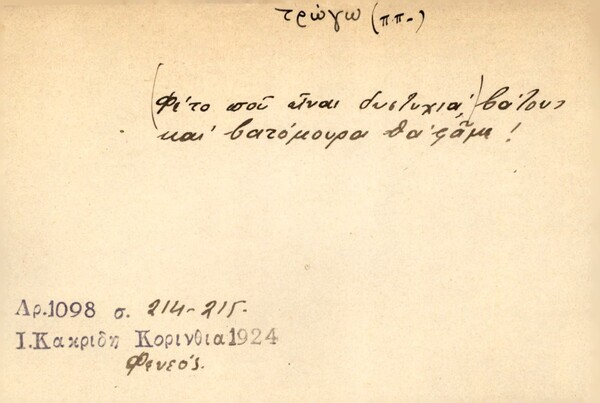 τρώγω (π.π.)
(Φέτο ποῦ εἶναι δυστυχιά) βάτους
καὶ βατόμουρα θὰ φᾶμε!
Αρ.1098 σ. 214-215.
Ι.Κακριδη Κορινθια 1924
Φενεός.